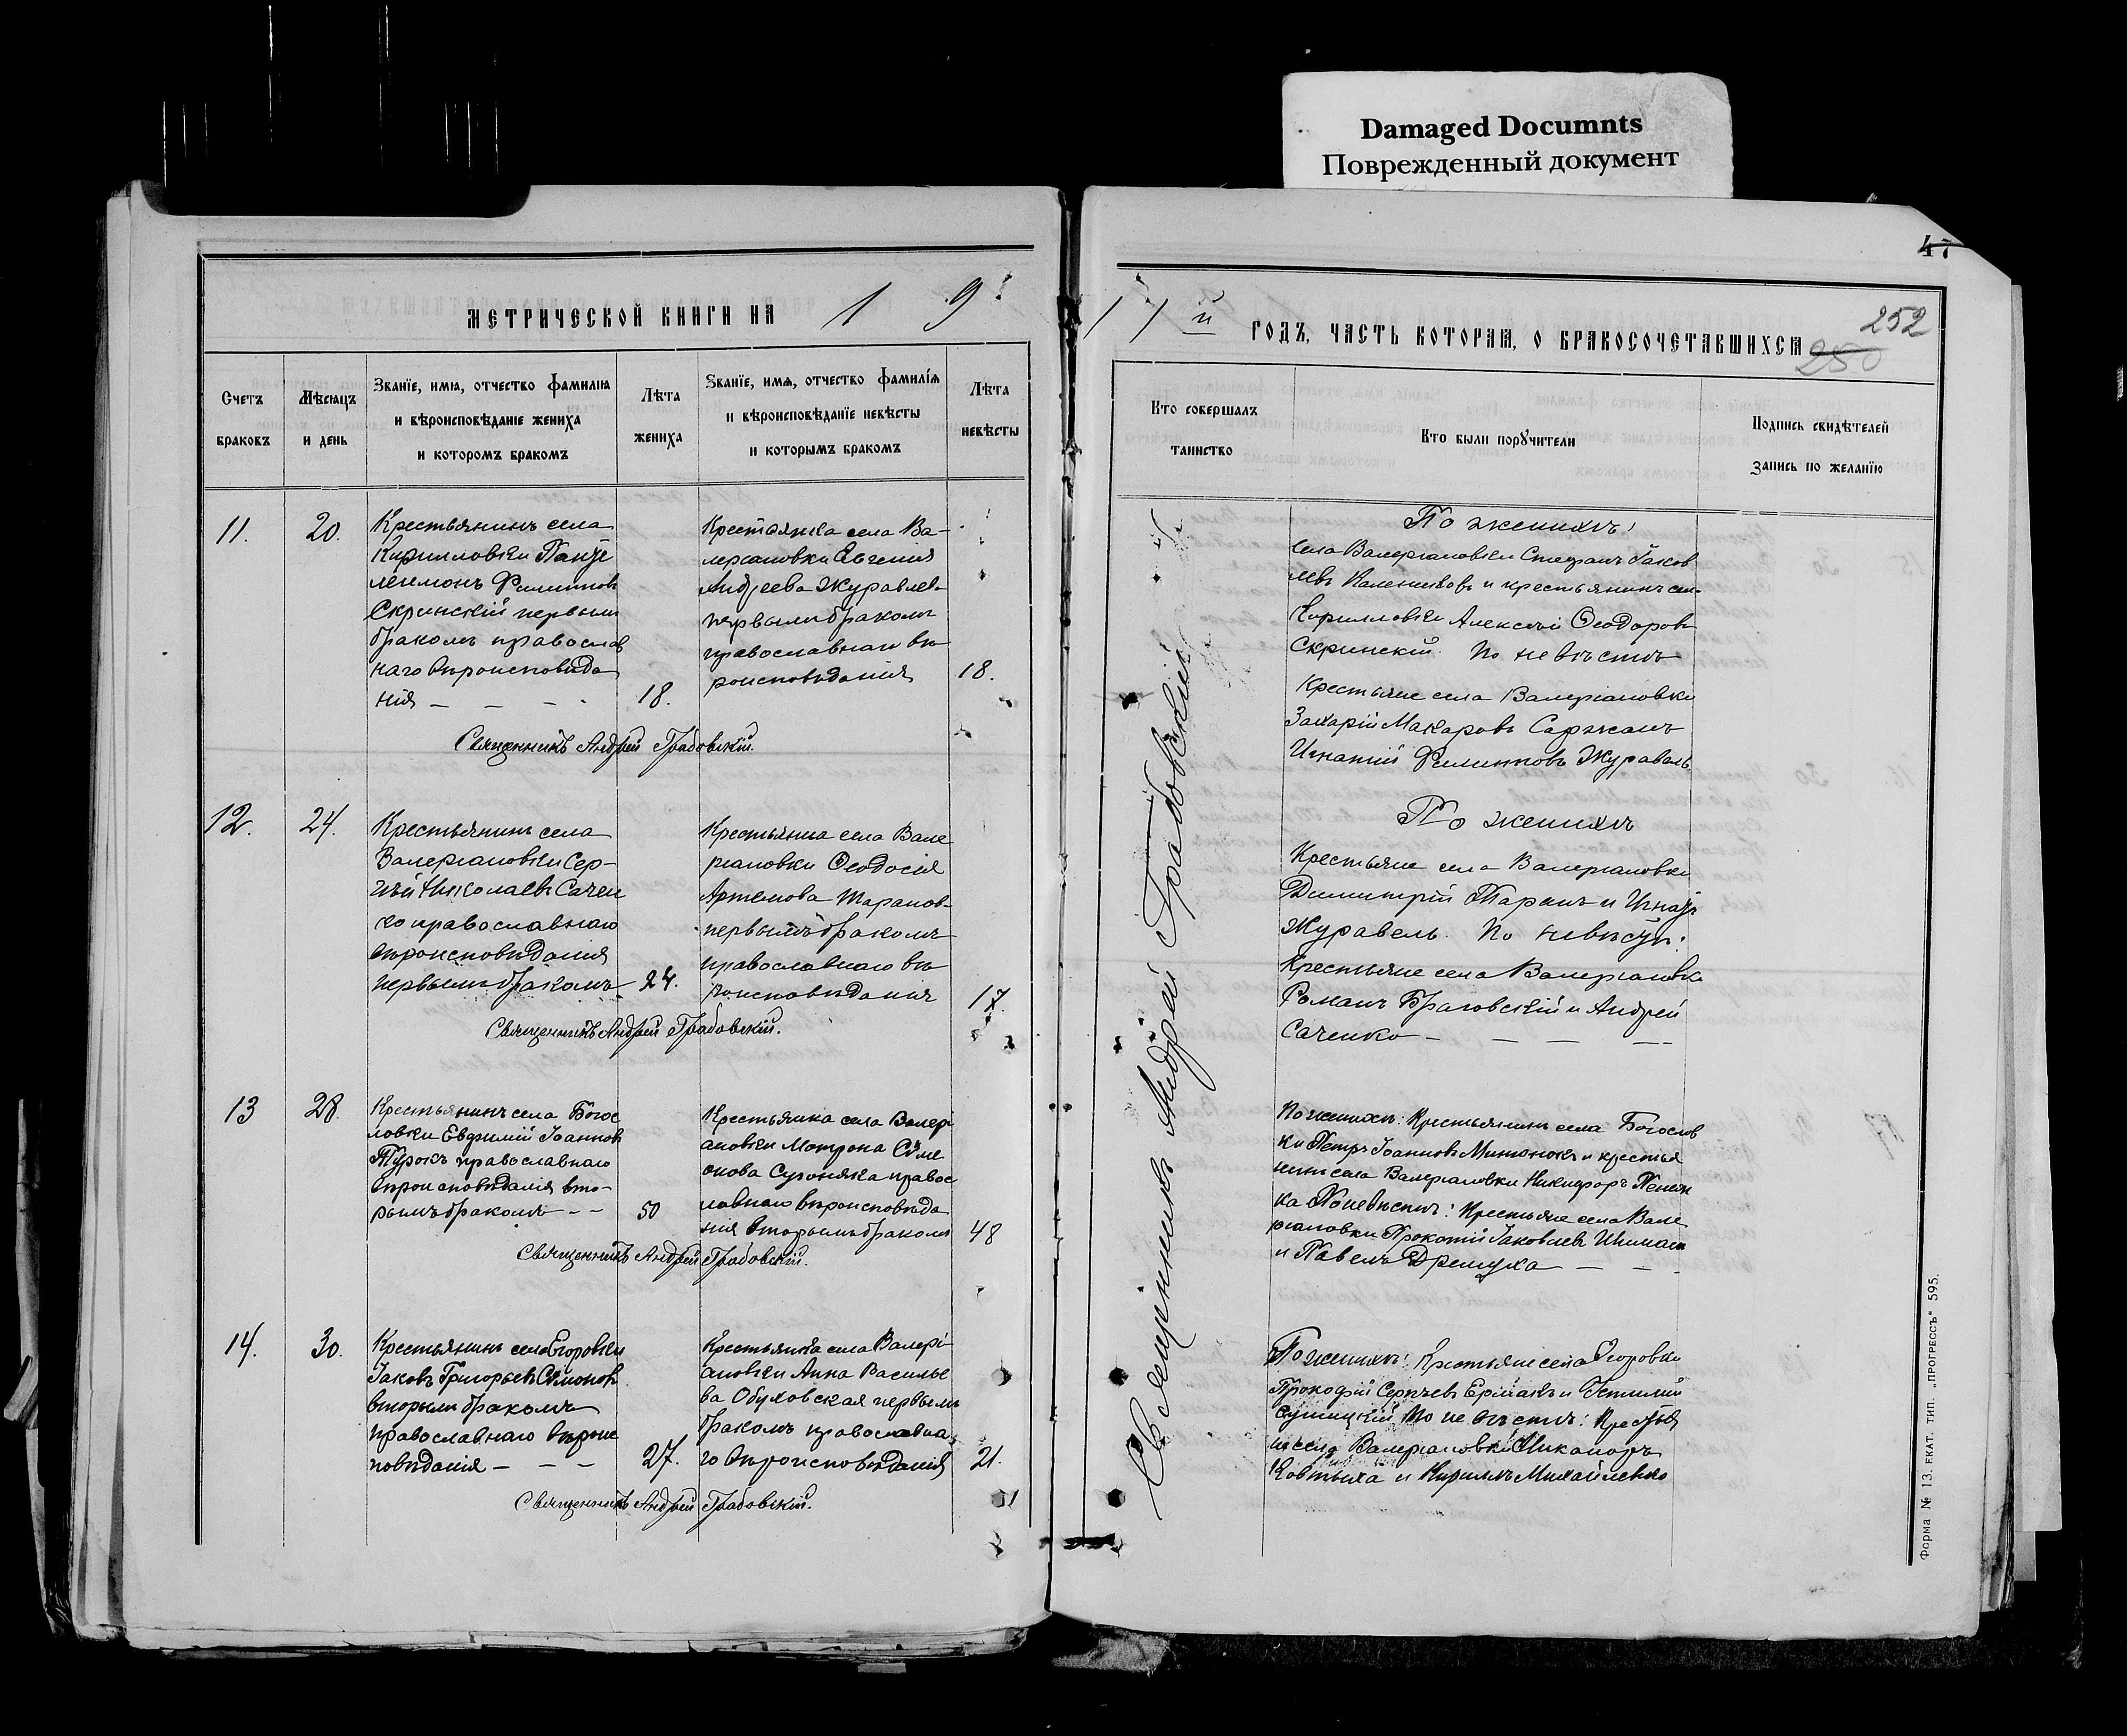 Damaged Documnts
Поврежденный документ
47
МЕТРИЧЕСКОЙ КНИГИ НА 1 9
1 7 й ГОДЪ, ЧАСТЬ КОТОРАЯ, О БРАКОСОЧЕТАВШИХСЯ
252
250
Счетъ браковъ
Мѣсяцъ и день
Званіе, имя, отчество фамилія
и вѣроисповѣданіе жениха
и которомъ бракомъ
Лѣта
жениха
Званіе, имя, отчество фамилія
и вѣроисповѣданіе невѣсты
и которымъ бракомъ
Лѣта
невѣсты
Кто совершалъ
таинство
Кто были поручители
Подпись свидѣтелей
Запись по желанію
11.
20.
Крестьянинъ села
Кирилловки
Филиппов
Скринскій первым
бракомъ православ
наго вѣроисповѣда
нія — — —
18.
Крестьянка села Ва-
леріановки Евгенія
Андреева Журавлев
первымъ бракомъ
православнаго вѣ
роисповѣданія
18.
Священникъ Андрей Грабовскій.
По женихѣ:
села Валеріановки Стефанъ Іаков
левъ и крестьянинъ сел.
Кирилловки Алексѣй Ѳеодоровъ
Скринскій. По невѣстѣ
Крестьяне села Валеріановки
Захарій Макаровъ Саржанъ
Игнатій Филипповъ Журавель
12.
24.
Крестьянинъ села
Валеріановки Сер-
гѣй Николаевъ Сачен
ко православнаго
вѣроисповѣданія
первымъ бракомъ
24.
Крестьянка села Вале
ріановки Ѳеодосія
Артемова Таранов
первымъ бракомъ
православнаго вѣ
роисповѣданія
17.
Священникъ Андрей Грабовскій.
По женихѣ
Крестьяне села Валеріановки
Димитрій Таранъ и Игнатій
Журавель. По невѣстѣ:
Крестьяне села Валеріановки
Романъ Браговскій и Андрей
Саченко — — — —
13
28.
Крестьянинъ села Богос
ловки Евфимій Іоаннов
Турокъ православнаго
вѣроисповѣданія вто-
рымъ бракомъ — —
50
Крестьянка села Валері
ановки Матрона Симе
онова православ
лавнаго вѣроисповѣда
нія вторымъ бракомъ
48
Священникъ Андрей Грабовскій.
По женихѣ: Крестьянинъ села Богослов
ки Петръ Іоанновъ и крестья
нинъ села Валеріановки Никифоръ
По невѣстѣ: Крестьяне села Вале
ріановки Прокопій Іаковлевъ
и Павелъ Дремуха — —
14.
30.
Крестьянинъ села Егоровки
Іаковъ Григорьевъ Симонов
вторымъ бракомъ
православнаго вѣроис
повѣданія — — —
27.
Крестьянка села Валері-
ановки Анна Василье
ва Обуховская первымъ
бракомъ православна
го вѣроисповѣданія
21.
Священникъ Андрей Грабовскій.
По женихѣ: Крестьяне села Егоровки
Прокофій Сергѣевъ Ермакъ и
По невѣстѣ: Крестья
не села Валеріановки Никаноръ
Ковтыха и Кириллъ Михайленко
Священникъ Андрей Грабовскій
Форма № 13. ЕКАТ. ТИП. „ПРОГРЕССЪ" 595.